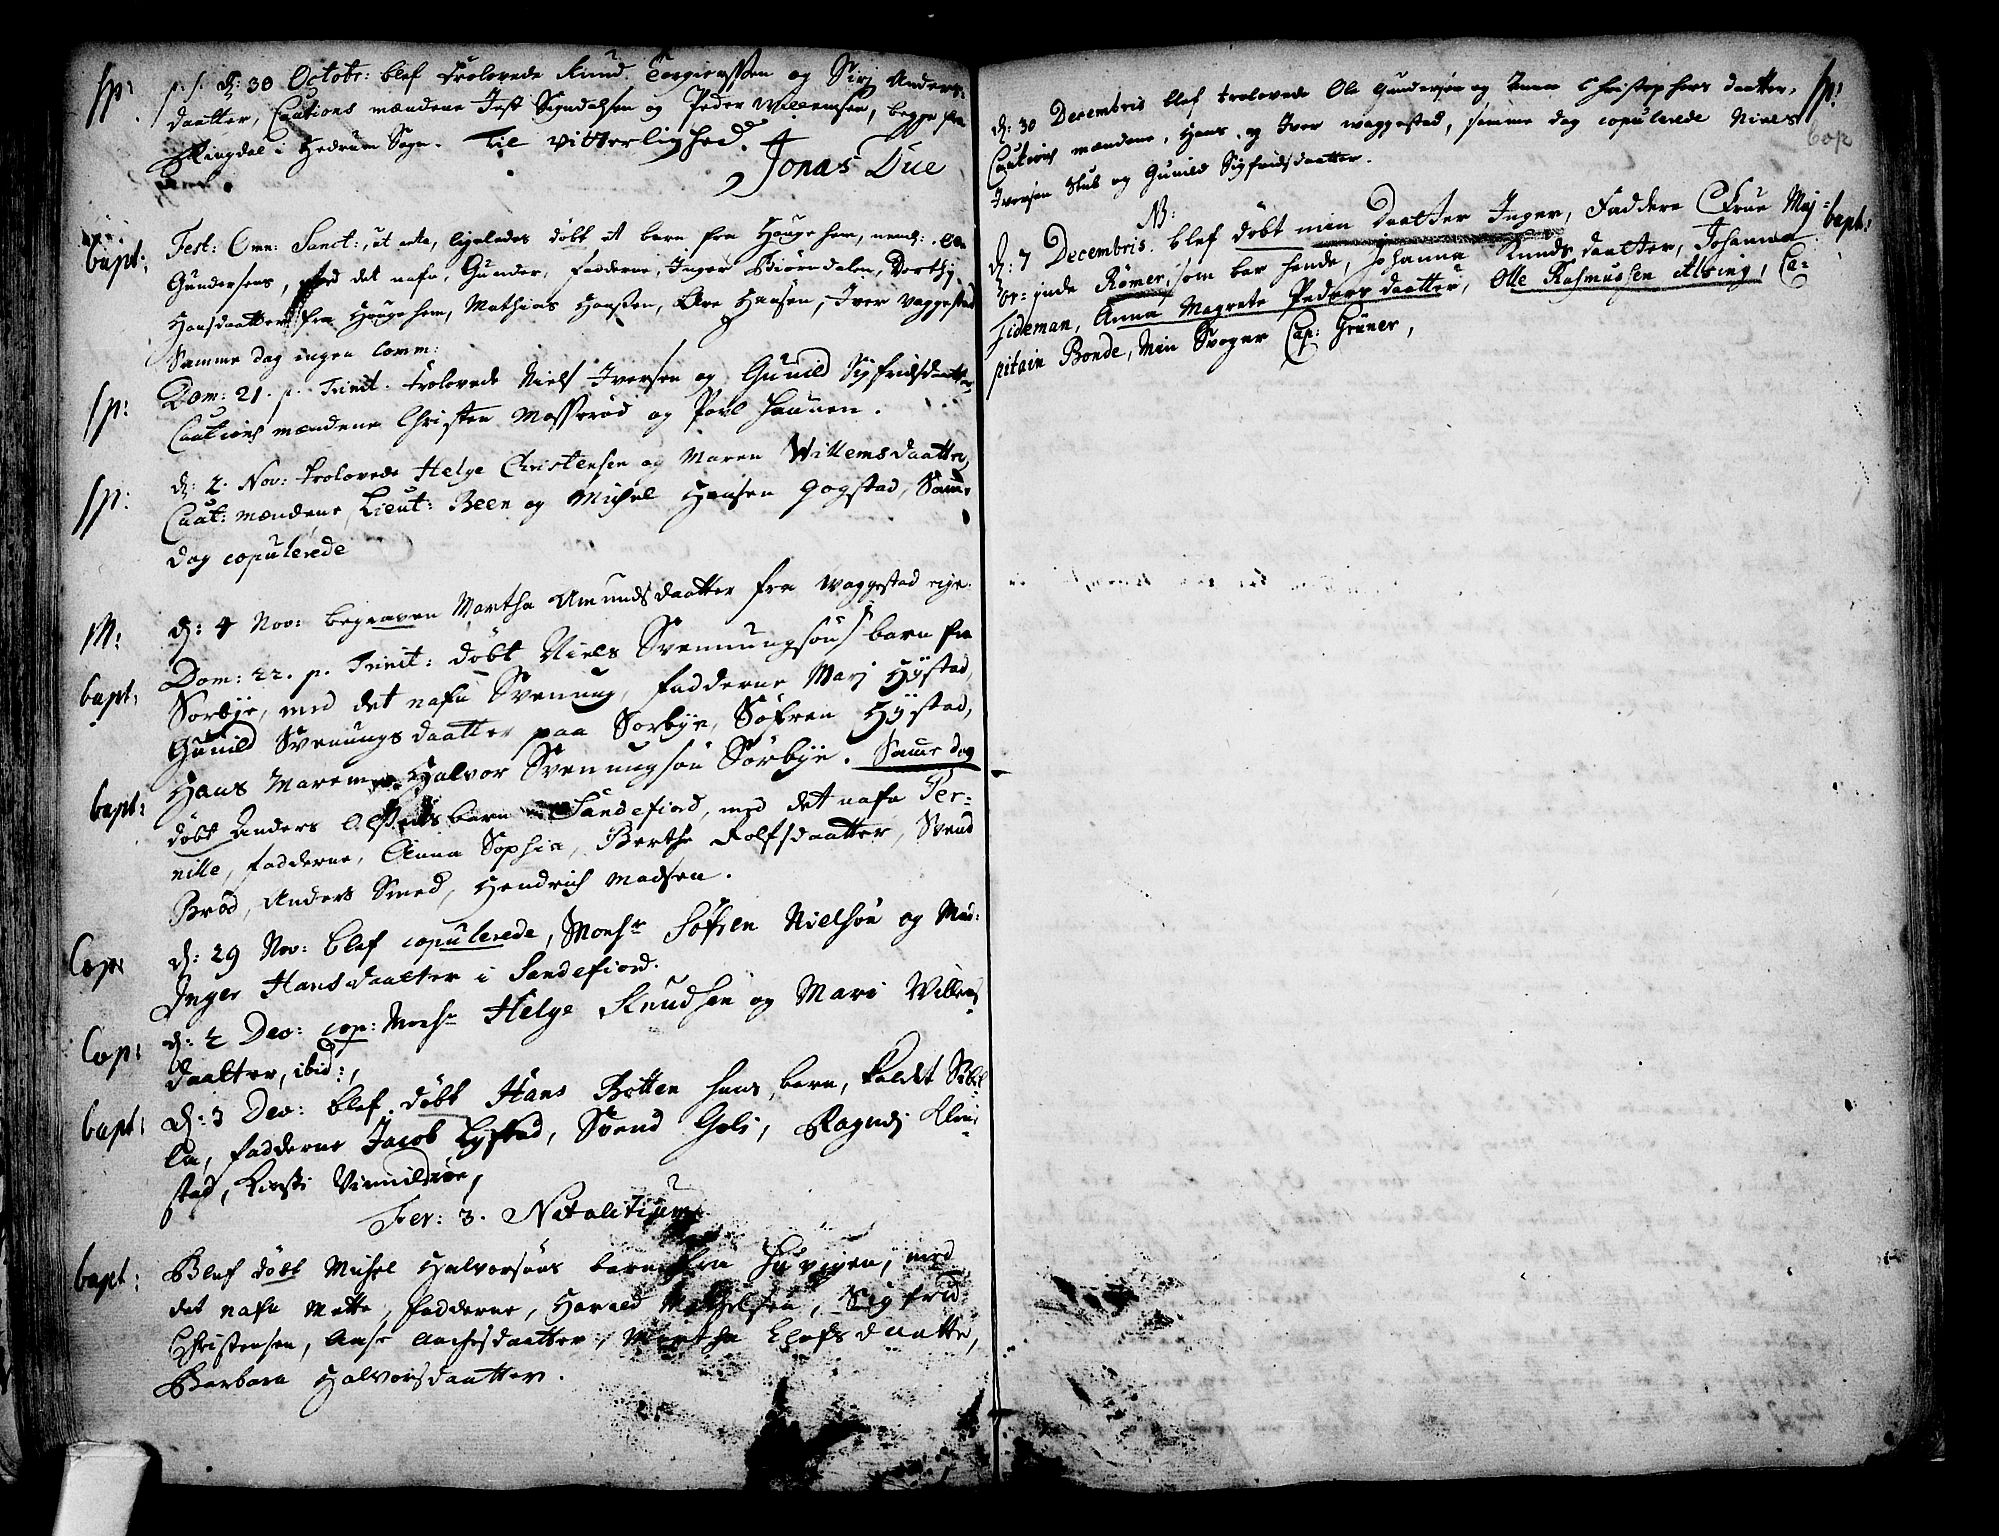 sp: p. s. d: 30 Octobr: blef Trolovede Knud Torgiersen og Sirj Anders-
daatter, Cautions mændene Jost Sigvalsen og Peder Willemsen, begge fra
Ringdal i Hedrum Sogn. Til Vitterlighed.
Jonas Due
bapt: Fest: Omn: Sanct:, ut ante, ligeledes døbt et barn fra Haugehem, neml: Ole
Gundersens, med det nafn, Gunder, fadderne, Inger Biørndalen, Dorthj
Hansdaatter fra Haugehem, Mathias Hansen, Are Hansen, Iver Vaggestad
Samme dag ingen Comm:
sp: Dom: 21. p. Trinit. Trolovede Niels Iversen og Gunild Sigfridsdaatter
Cautions mændene Christen Masserød og Povl Haunen.
sp: d: 2. Nov: trolovede Helge Christensen og Maren Willemsdaatter,
Caut: mændene, Lieut: Been og Michel Hansen Gogstad, Sam:
dag copulerede
M: d: 4 Nov: begraven Martha Amundsdaatter fra Waggestad eje.
bapt: Dom: 22. p. Trinit: døbt Niels Svennungsøns barn fra
Sorbye, med det nafn Svenung, fadderne Marj Hystad,
Gunild Svenungsdaatter paa Sorbye, Søfren Hystad,
Hans Marem, Halvor Svenungsøn Sørbye. Same dag
bapt: døbt Anders barn Sandefiord, med det nafn Per-
nille, fadderne, Anna Sophia, Berthe Rolfsdaatter, Svend
Brød, Anders Smed, Hendrich Madsen.
Cop: d: 29 Nov: blef copulerede, Monsr Søfren Nielsøn og Mad:
Inger Hansdaatter i Sandefiord.
Cop: d: 2 Dec: cop: Monsr Helge Knudsen og Mari Willems
daatter, ibid:,
bapt: d: 3 Dec: blef døbt Hans Botten hans barn, kaldet Sibil-
la, fadderne Jacob Lystad, Svend Goli, Ragndj Klin-
stad, Kirsti Virmildrøe,
Fer: 3. Natalitium
bapt: Blef døbt Michel Halvorsøns barn fra Huvigen, med
det nafn Mette, fadderne, Harald Michelsen, Sigfrid
Christensen, Anne Aachesdaatter, Martha Elofsdaatter,
Barbara Halvorsdaatter.
d: 30 Decembris blef trolovede Ole Gundersøn og Anna Christophers daatter, sp:
Cautions mændene, Hans og Iver Waggestad, samme dag copulerede Niels Cop
Iversen Stub og Gunild Sigfridsdaatter.
NB:
d: 7 Decembris. blef døbt min Daatter Inger, Faddere CFrue Maj- bapt:
or: inde Rømer, som bar hende, Johanna Knudsdaatter, Johanna
Tideman, Anna Magrete Pedersdaatter, Olle Rasmussen Alsing, Ca-
pitain Bonde, Min Svoger Cap: Grüner,